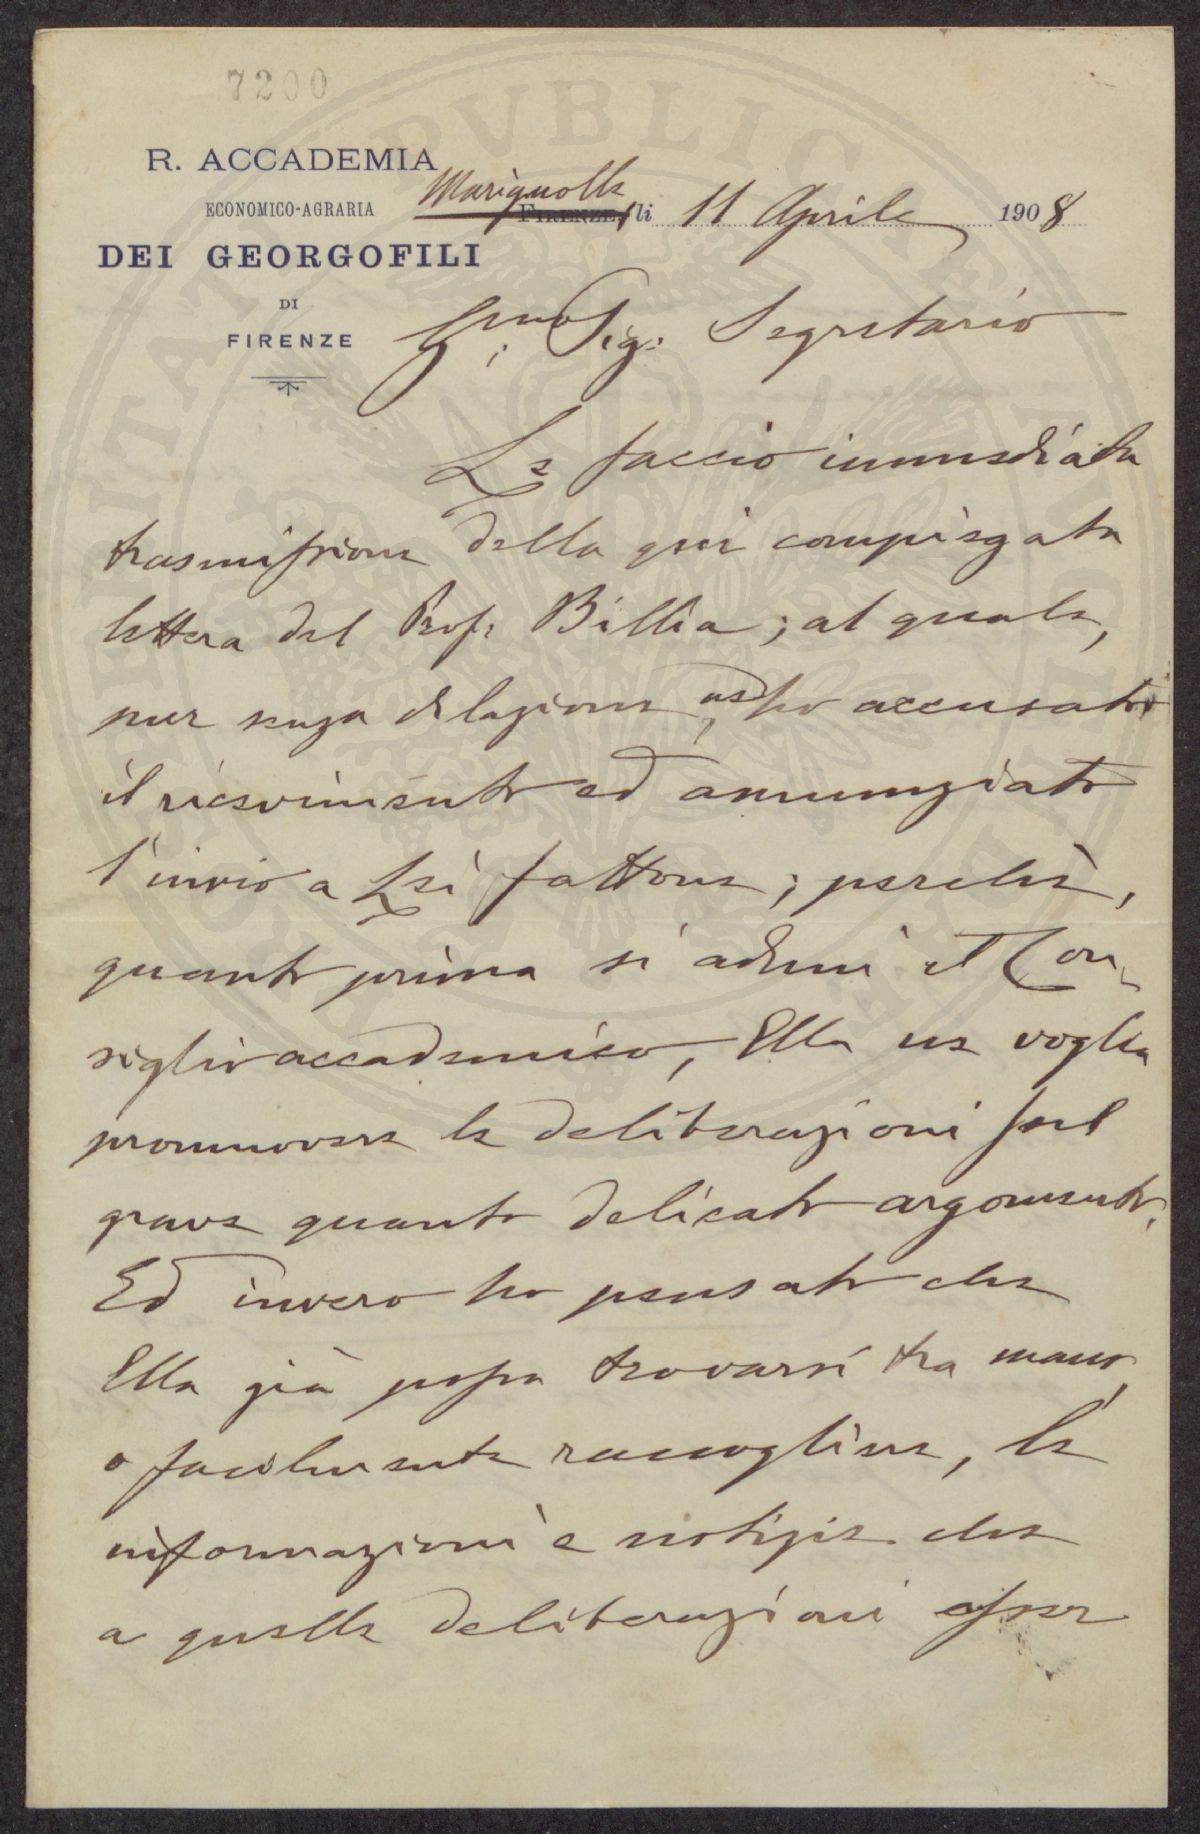 7200
R. ACCADEMIA
ECONOMICO-AGRARIA
DEI GEORGOFILI
DI
FIRENZE
Marignolle
FIRENZE, li 11 Aprile 1908
Sig. Segretario
Le faccio immediata
trasmissione della qui compiegata
lettera del Prof. Billia; al quale,
pur senza dilazione, ho accusato
il ricevimento ed annunziato
l'invio a Lei fattone; perchè,
quanto prima si aduni il Con-
siglio accademico, Ella ne voglia
promuovere le deliberazioni sul
grave quanto delicato argomento.
Ed invero ho pensato che
Ella già possa trovarsi tra mano,
o facilmente raccogliere, le
informazioni e notizie che
a quelle deliberazioni esser